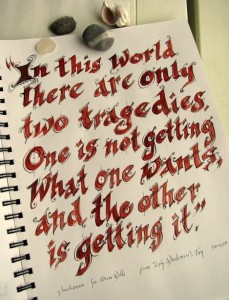 "In this World
there are only
two tragedies.
One is not getting
What one wants,
and the other
is getting it."
from Lady Windermere's Fan